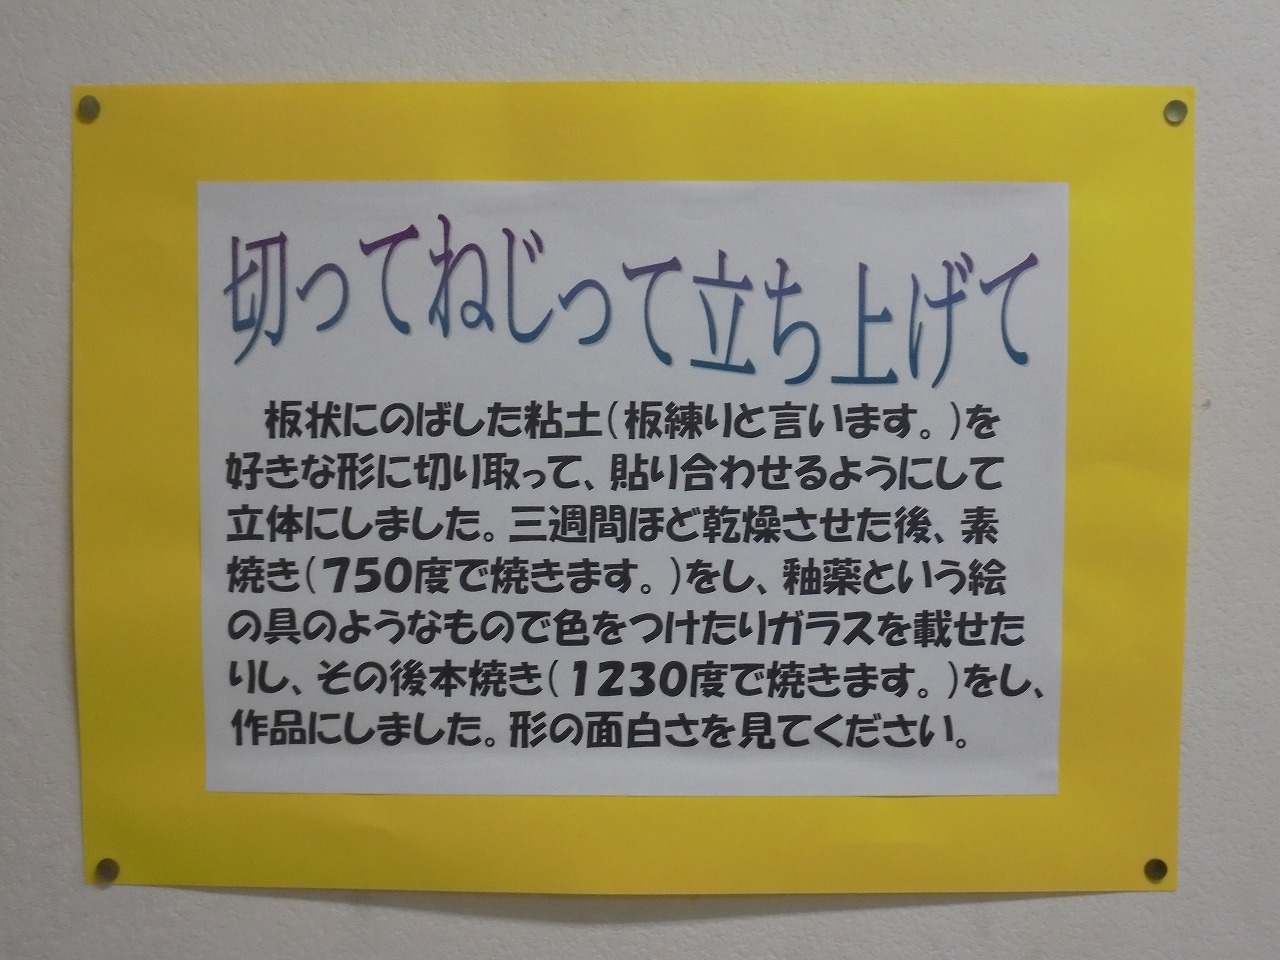 切ってねじって立ち上げて
板状にのばした粘土(板練りと言います。)を
好きな形に切り取って、貼り合わせるようにして
立体にしました。三週間ほど乾燥させた後、素
焼き(750度で焼きます。)をし、釉薬という絵
の具のようなもので色をつけたりガラスを載せた
りし、その後本焼き(1230度で焼きます。)をし、
作品にしました。形の面白さを見てください。